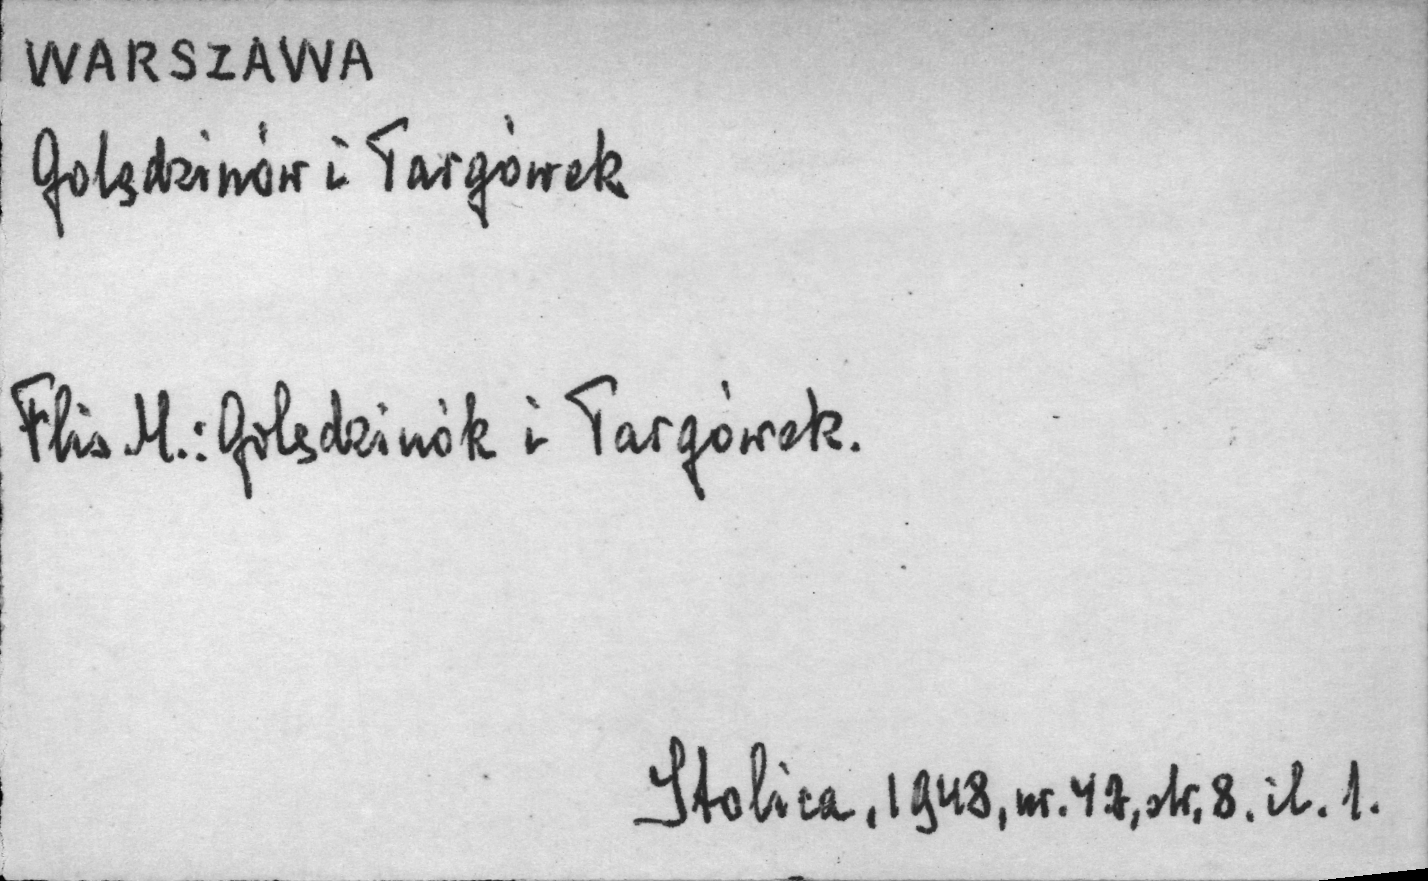 WARSZAWA
Golędzinów i Targówek
Flis M.: Golędzinók i Targówek.
Stolica, 1948, nr. 47, str, 8. il. 1.